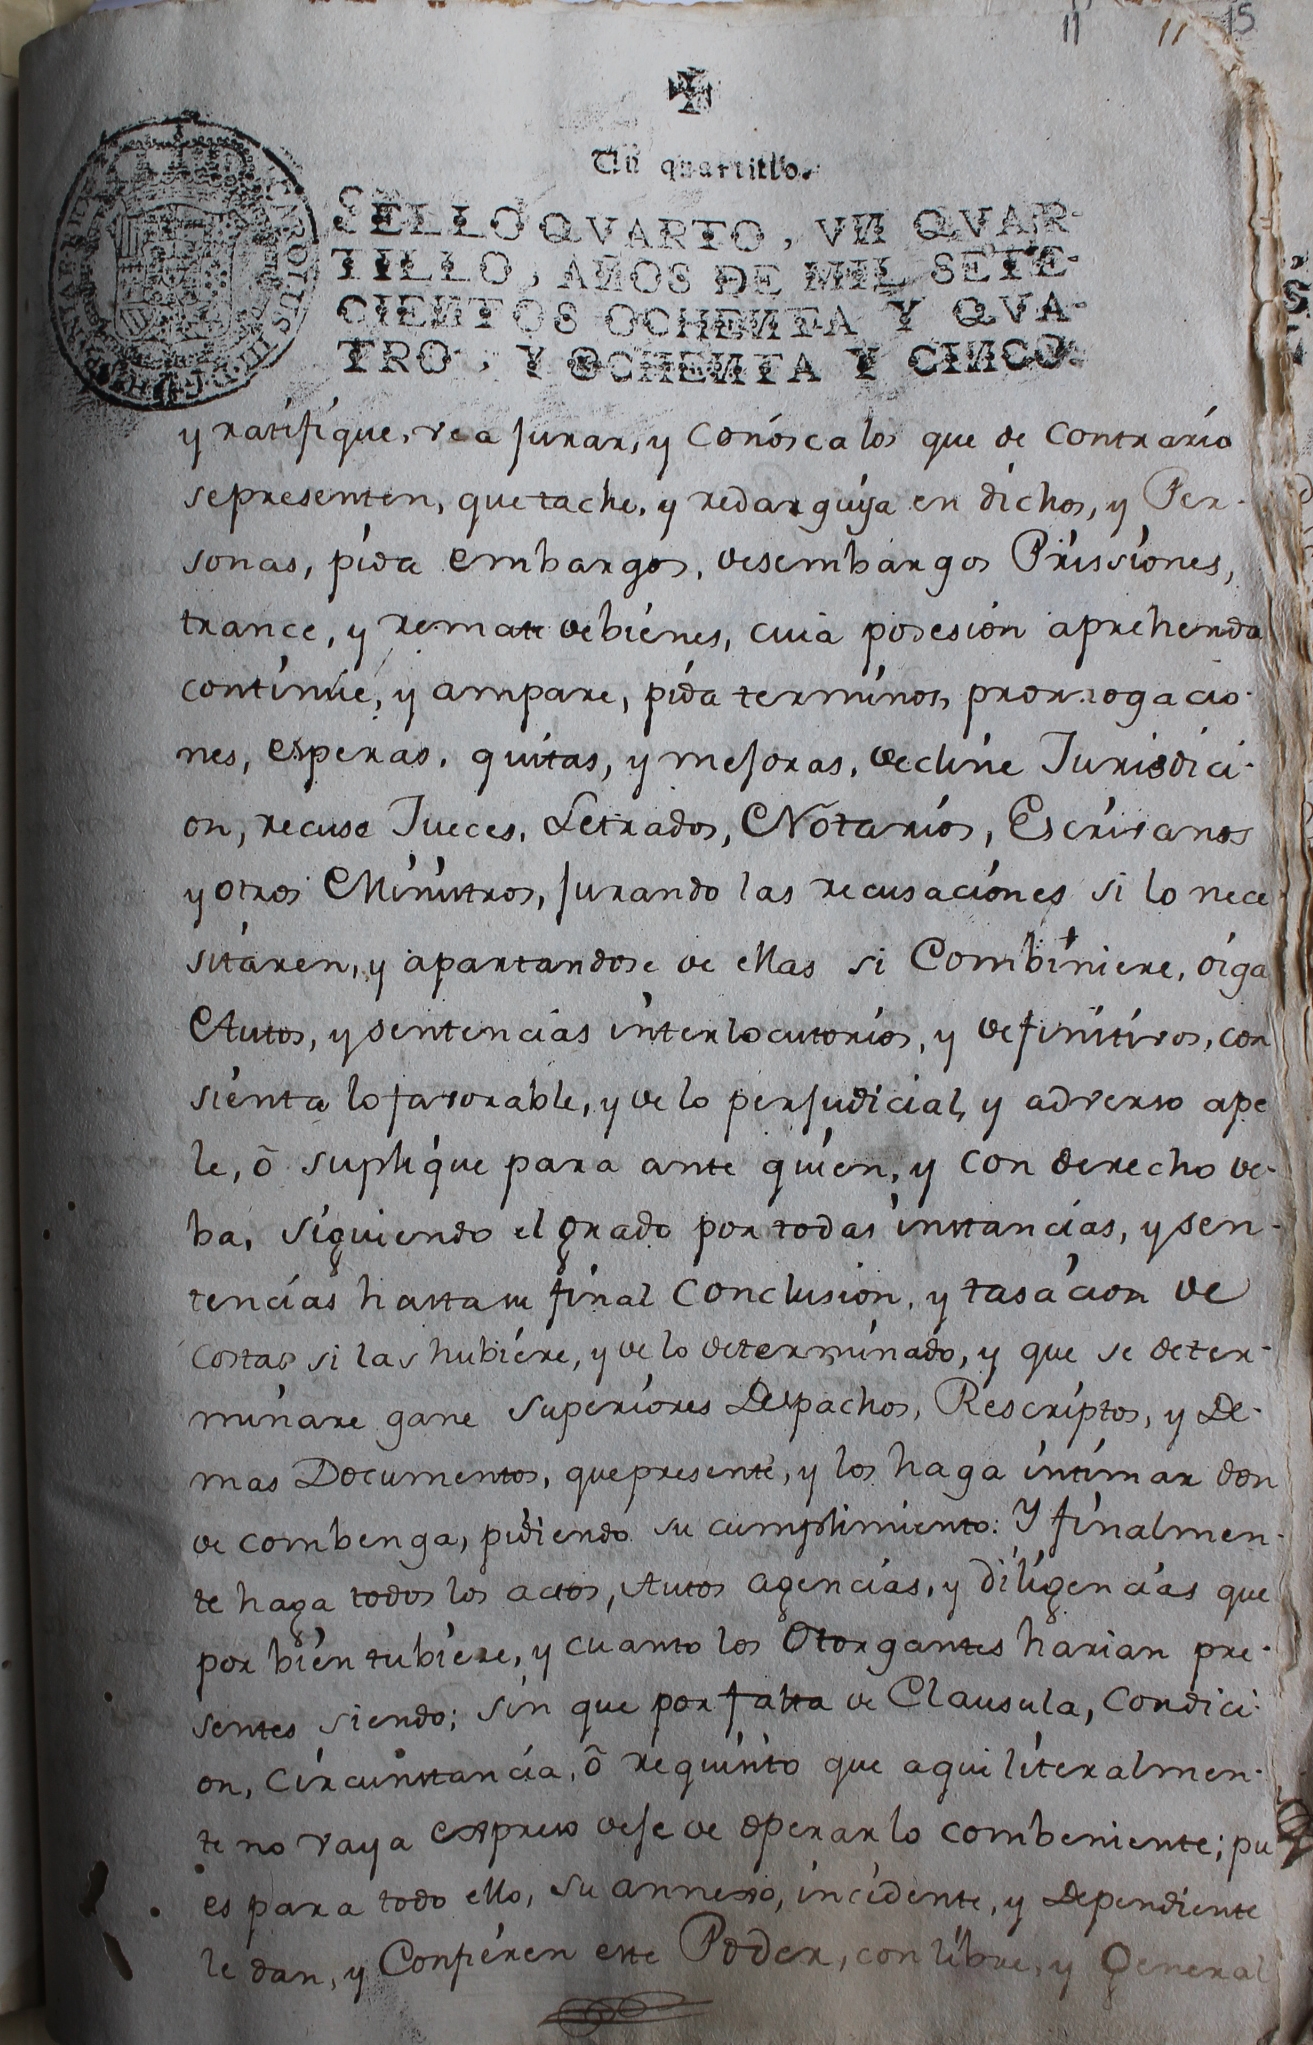 11 11 15
Un quartillo.
SELLO QVARTO, VN QVAR-
TILLO, AÑOS DE MIL SETE-
CIENTOS OCHENTA Y QVA-
TRO, Y OCHENTA Y CINCO.
y ratifique, vea jurar, y conósca los que de contrario
sepresenten, que tache, y redarguya en dichos, y Per-
sonas, pida embargos, desembargos Prissiones,
trance, y remate debienes, cuia posesion aprehenda
continúe, y ampare, pida terminos, prorrogacio-
nes, esperas, quitas, y mejoras, decline Jurisdici-
on, recuse Jueces, Letrados, Notarios, Escrivanos
y otros Ministros, jurando las recusaciones si lo nece
sitaren, y apartandose de ellas si Combiniere, oiga
Autos, y sentencias interlocutorios, y definitivos, con
sienta lo favorable, y de lo perjudicial, y adverso ape
le, ō suplique para ante quien, y con derecho de-
ba, siguiendo el grado por todas instancias, y sen-
tencias hasta su final conclusion, y tasacion de
costas si las hubiere, y de lo determinado, y que se deter-
minare gane superiores Despachos, Rescriptos, y De-
mas Documentos, quepresente, y los haga intimar don
de combenga, pidiendo su cumplimiento: Y finalmen-
te haga todos los actos, Autos agencias, y diligencias que
por bien tubiere, y cuanto los Otorgantes harian pre-
sentes siendo; sin que por falta de Clausula, Condici-
on, circunstancia, ō requisito que aqui literalmen-
te no vaya expreso deje de operar lo combeniente; pu
es para todo ello, su annexo, incidente, y Dependiente
le dan, y Confieren este Poder, con libre, y General